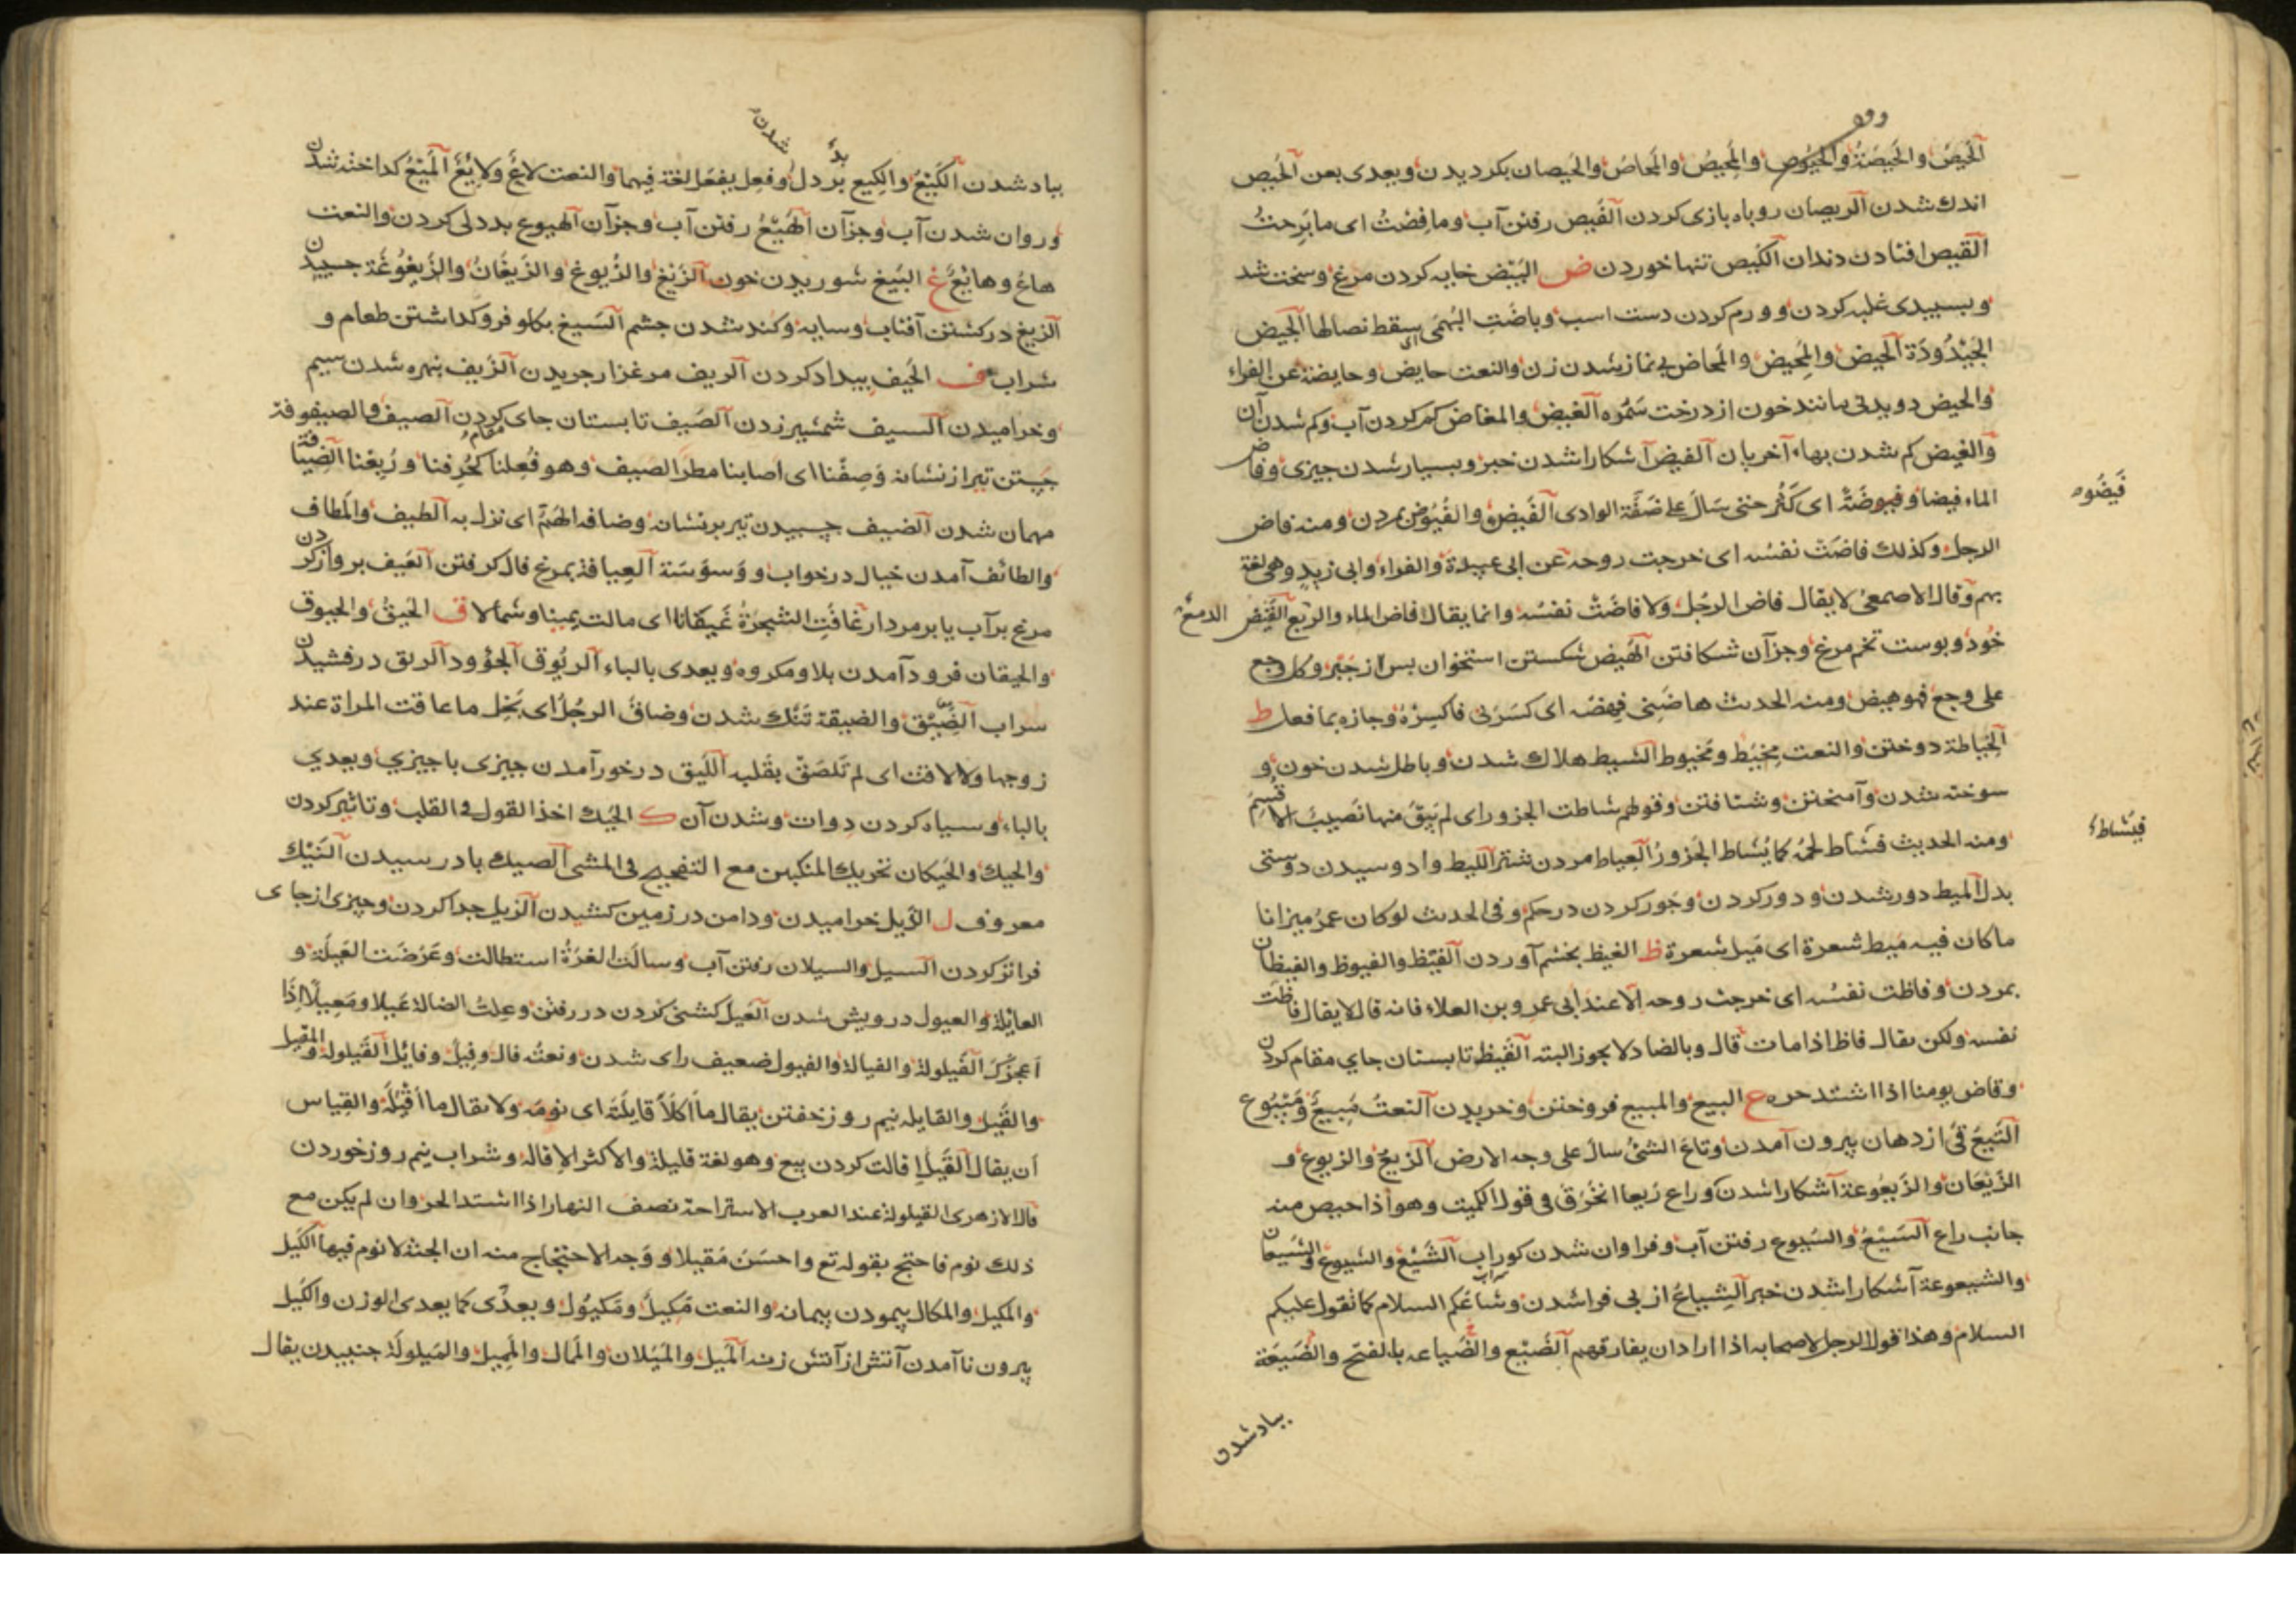 الحیص والحیصة والحیوص والمحیص والمحاص والحیصان بکردیدن ویعدی بعن الحیص
اندك شدن الریصان روباه بازی کردن الفیص رفتن آب وما فِصْتُ ای ما بَرِحتُ
القیص افتادن دندان الکیص تنها خوردن ض البَیْض خایه کردن مرغ وسخت شد
وبسبیدی غلبه کردن وورم کردن دست اسب وباضَتِ البُهمَی ای سقط نصالها الجیض
الحیض والمحیض والمحاض بی نماز شدن زن والنعت حایض وحایضة عن الفراء
والحیض دویدنی مانند خون از درخت سَمُره الغیض والمغاض کم کردن آب وکم شدن آن
والغیض کم شدن بهاء آخریان الفیض آشکارا شدن خبر وبسیار شدن چیزی وفاض
فَیضُوه
الماء فیضا وفیوضَةً ای کَثُر حتی سَالَ علی ضَفَّة الوادی الفَیض والفُیُوض بمردن ومنه فاض
الرجل وکذلك فاضَتْ نفسُه ای خرجت روحه عن ابی عبیدة والفراء وابی زید وهی لغة
بهم وقال الاصمعی لا یقال فاض الرجُل ولا فاضَتْ نفسُه وانما یقال فاض الماء والدمع القَیض
خُود وبوست تخم مرغ وجز آن شکافتن الهَیض شکستن استخوان بس از جَبْر وکل وجع
علی وجع فهو هیض ومنه الحدیث هاضَنِی فهِضْه ای کسَرَنی فاکسِرْهُ وجازه بما فعل ط
الخِیاطة دوختن والنعت مِخیَط ومَخیوط الشیط هلاك شدن وباطل شدن خون و
سوخته شدن وآمیختن وشتافتن وقولهم شاطت الجزور ای لم یَبْقَ منها نصیبٌ الا قُسِمَ
فیَشاط
ومنه الحدیث فشاط لحمُه کما یُشاط الجَزورُ العِیاط مردن شتر اللیط وا دوسیدن دوستی
بدل المیط دور شدن ودور کردن وجَور کردن در حکم وفی الحدیث لو کان عمرُ میزانا
ما کان فیه مَیط شعرة ای مَیل شعرة ظ الغیظ بخشم آوردن الفَیْظ والفیوظ والفیظان
بمردن وفاظت نفسُه ای خرجت روحه الا عند ابی عمرو بن العلاء فانه قال لا یقال فاظَت
نفسه ولکن یقال فاظ اذا مات قال وبالضاد لا یجوز البته القَیظ تابستان جای مقام کردن
وقاض یومنا اذا اشتد حره ع البیع والمبیع فروختن وخریدن النعتُ مَبِیعٌ ومَبْیُوع
التَیعُ قَیْ از دهان بیرون آمدن وتاعَ الشئُ سالَ علی وجه الارض الرَیعُ والریوع و
الرَیَعَان والرَیعُوعة آشکارا شدن وراع رَیعا انخَرَق فی قول الکمیت وهو اذا حیص منه
جانب راع السَیْعُ والسُیوع رفتن آب وفراوان شدن کوراب الشَیْع والشیوع والشَیَعان
والشیعوعة آشکارا شدن خبر الشِیاعُ از بی فرا شدن وشاعَکم السلام کما تقول علیکم
السلام وهذا قول الرجل لاصحابه اذا اراد ان یفارقهم الضَیْع والضَیاعه بالفتح والضَیعَة
بیاد شدن
بیاد شدن الکَیْعُ والکیع بددل شدن وفعِل یفعَل لغة فیهما والنعت لاعٍ ولایِعٌ المَیْعُ کداخته شدن
وروان شدن آب وجز آن الهَیْعُ رفتن آب وجز آن الهیوع بددلی کردن والنعت
هاعٌ وهایِعٌ غ البَیغ شوریدن خون الزَیْغ والزُیوغ والزَیغَانُ والزَیغُوغَة جسبیدن
الزیغ در کشتن آفتاب وسایه وکند شدن جشم السَیغ بکلو فرو کداشتن طعام و
شراب ف الحَیف بیداد کردن الریف مرغزار جریدن الزَیف بنهره شدن سیم
وخرامیدن السیف شمشیر زدن الصَیف تابستان جای مقام کردن الصیف والصیفوفة
جَستن تیر از نشانه وَصِفْنا ای اصابنا مطر الصیف وهو فُعِلنا کخُرِفنا ورُبِعْنا الضِیافة
مهمان شدن الضیف چسبیدن تیر بر نشانه وضافه الهَمُّ ای نزل به الطیف والمَطاف
والطائف آمدن خیال در خواب ووَسوَسَة العِیافة بمرغ فال کرفتن العَیف برواز کردن
مرغ بر آب یا بر مردار غافَتِ الشجرَةُ غَیَفَانا ای مالت یمینا وشمالا ق الحَیقُ والحیوق
والحیقان فرود آمدن بلا ومکروه ویعدی بالباء الریُوق الجؤود الریق درفشیدن
سراب الضِیْق والضیقة تَنْك شدن وضاقَ الرجُل ای بَخِل ما عاقت المراة عند
زوجها ولا لاقت ای لم تَلصَقْ بقَلبه اللَیق درخور آمدن چیزی با چیزی ویعدی
بالباء وسیاه کردن دوات وشدن آن ك الحَیك اخذ القول فی القلب وتاثیر کردن
والحیك والحَیَکان تحریك المنکبین مع التفحیج فی المشی الصیك بادر سیدن النَیْك
معروف ل الذَیل خرامیدن ودامن در زمین کشیدن الزیل جدا کردن وچیزی از جای
فراتر کردن السیل والسیلان رفتن آب وسالَت الغرَةُ استطالت وعَرُضَت العَیلَة و
العایلة والعیول درویش شدن العَیل کشنی کردن در رفتن وعِلتُ الضالة عَیلا ومَعِیلًا اِذَا
اَعجَزَكَ الفَیلولة والفیالة والفیول ضعیف رای شدن ونعتُه فال وفیلٌ وفایِل القَیلولة والمقیل
والقَیل والقایله نیم روز خفتن یقال ما اکلأ قایِلَةَ ای نومَه ولا یقال ما اَقْیَلَهُ والقیاس
اَن یقال القَیل اِقالت کردن بیع وهو لغة قلیلة والاکثر الاِقالة وشراب نیم روز خوردن
قال الازهری القیلولة عند العرب الاستراحة نصف النهار اذا اشتد الحر وان لم یکن مع
ذلك نوم فاحتج بقوله تع واحسَنَ مَقیلا ووَجه الاحتجاج منه ان الجنة لا نوم فیها الکَیل
والمَکیل والمکال پیمودن پیمانه والنعت مَکِیلٌ ومَکیُول ویعدَّی کما یعدی الوزن والکَیل
بیرون نا آمدن آتش از آتش زنه المَیل والمَیَلان والمَمال والمَمِیل والمَیلولَة جنبیدن یقال